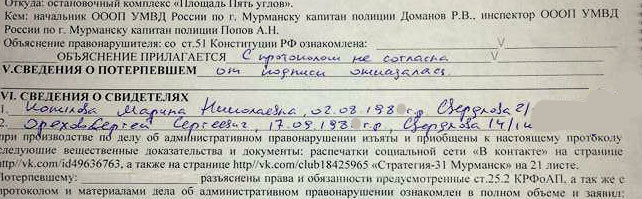 Откуда: остановочный комплекс «Площадь Пять углов».
Кем: начальник ОООП УМВД России по г. Мурманску капитан полиции Доманов Р.В., инспектор ОООП УМВД
России по г. Мурманску капитан полиции Попов А.Н.
Объяснение правонарушителя: со ст.51 Конституции РФ ознакомлена: V
ОБЪЯСНЕНИЕ ПРИЛАГАЕТСЯ С протоколом не согласна V
V.СВЕДЕНИЯ О ПОТЕРПЕВШЕМ от подписи отказалась
VI. СВЕДЕНИЯ О СВИДЕТЕЛЯХ
1. Марина Николаевна, 02.08.198 г.р. Свердлова 2/
2. Орехов Сергей Сергеевич, 17.09.198 г.р., Свердлова 14/
при производстве по делу об административном правонарушении изъяты и приобщены к настоящему протоколу
следующие вещественные доказательства и документы: распечатки социальной сети «В контакте» на странице
http//vk.com/id49636763, а также на странице http//vk.com/club18425965 «Стратегия-31 Мурманск» на 21 листе.
Потерпевшему: разъяснены права и обязанности предусмотренные ст.25.2 КРФоАП, а так же с
протоколом и материалами дела об административном правонарушении ознакомлен в полном объеме и заявил: